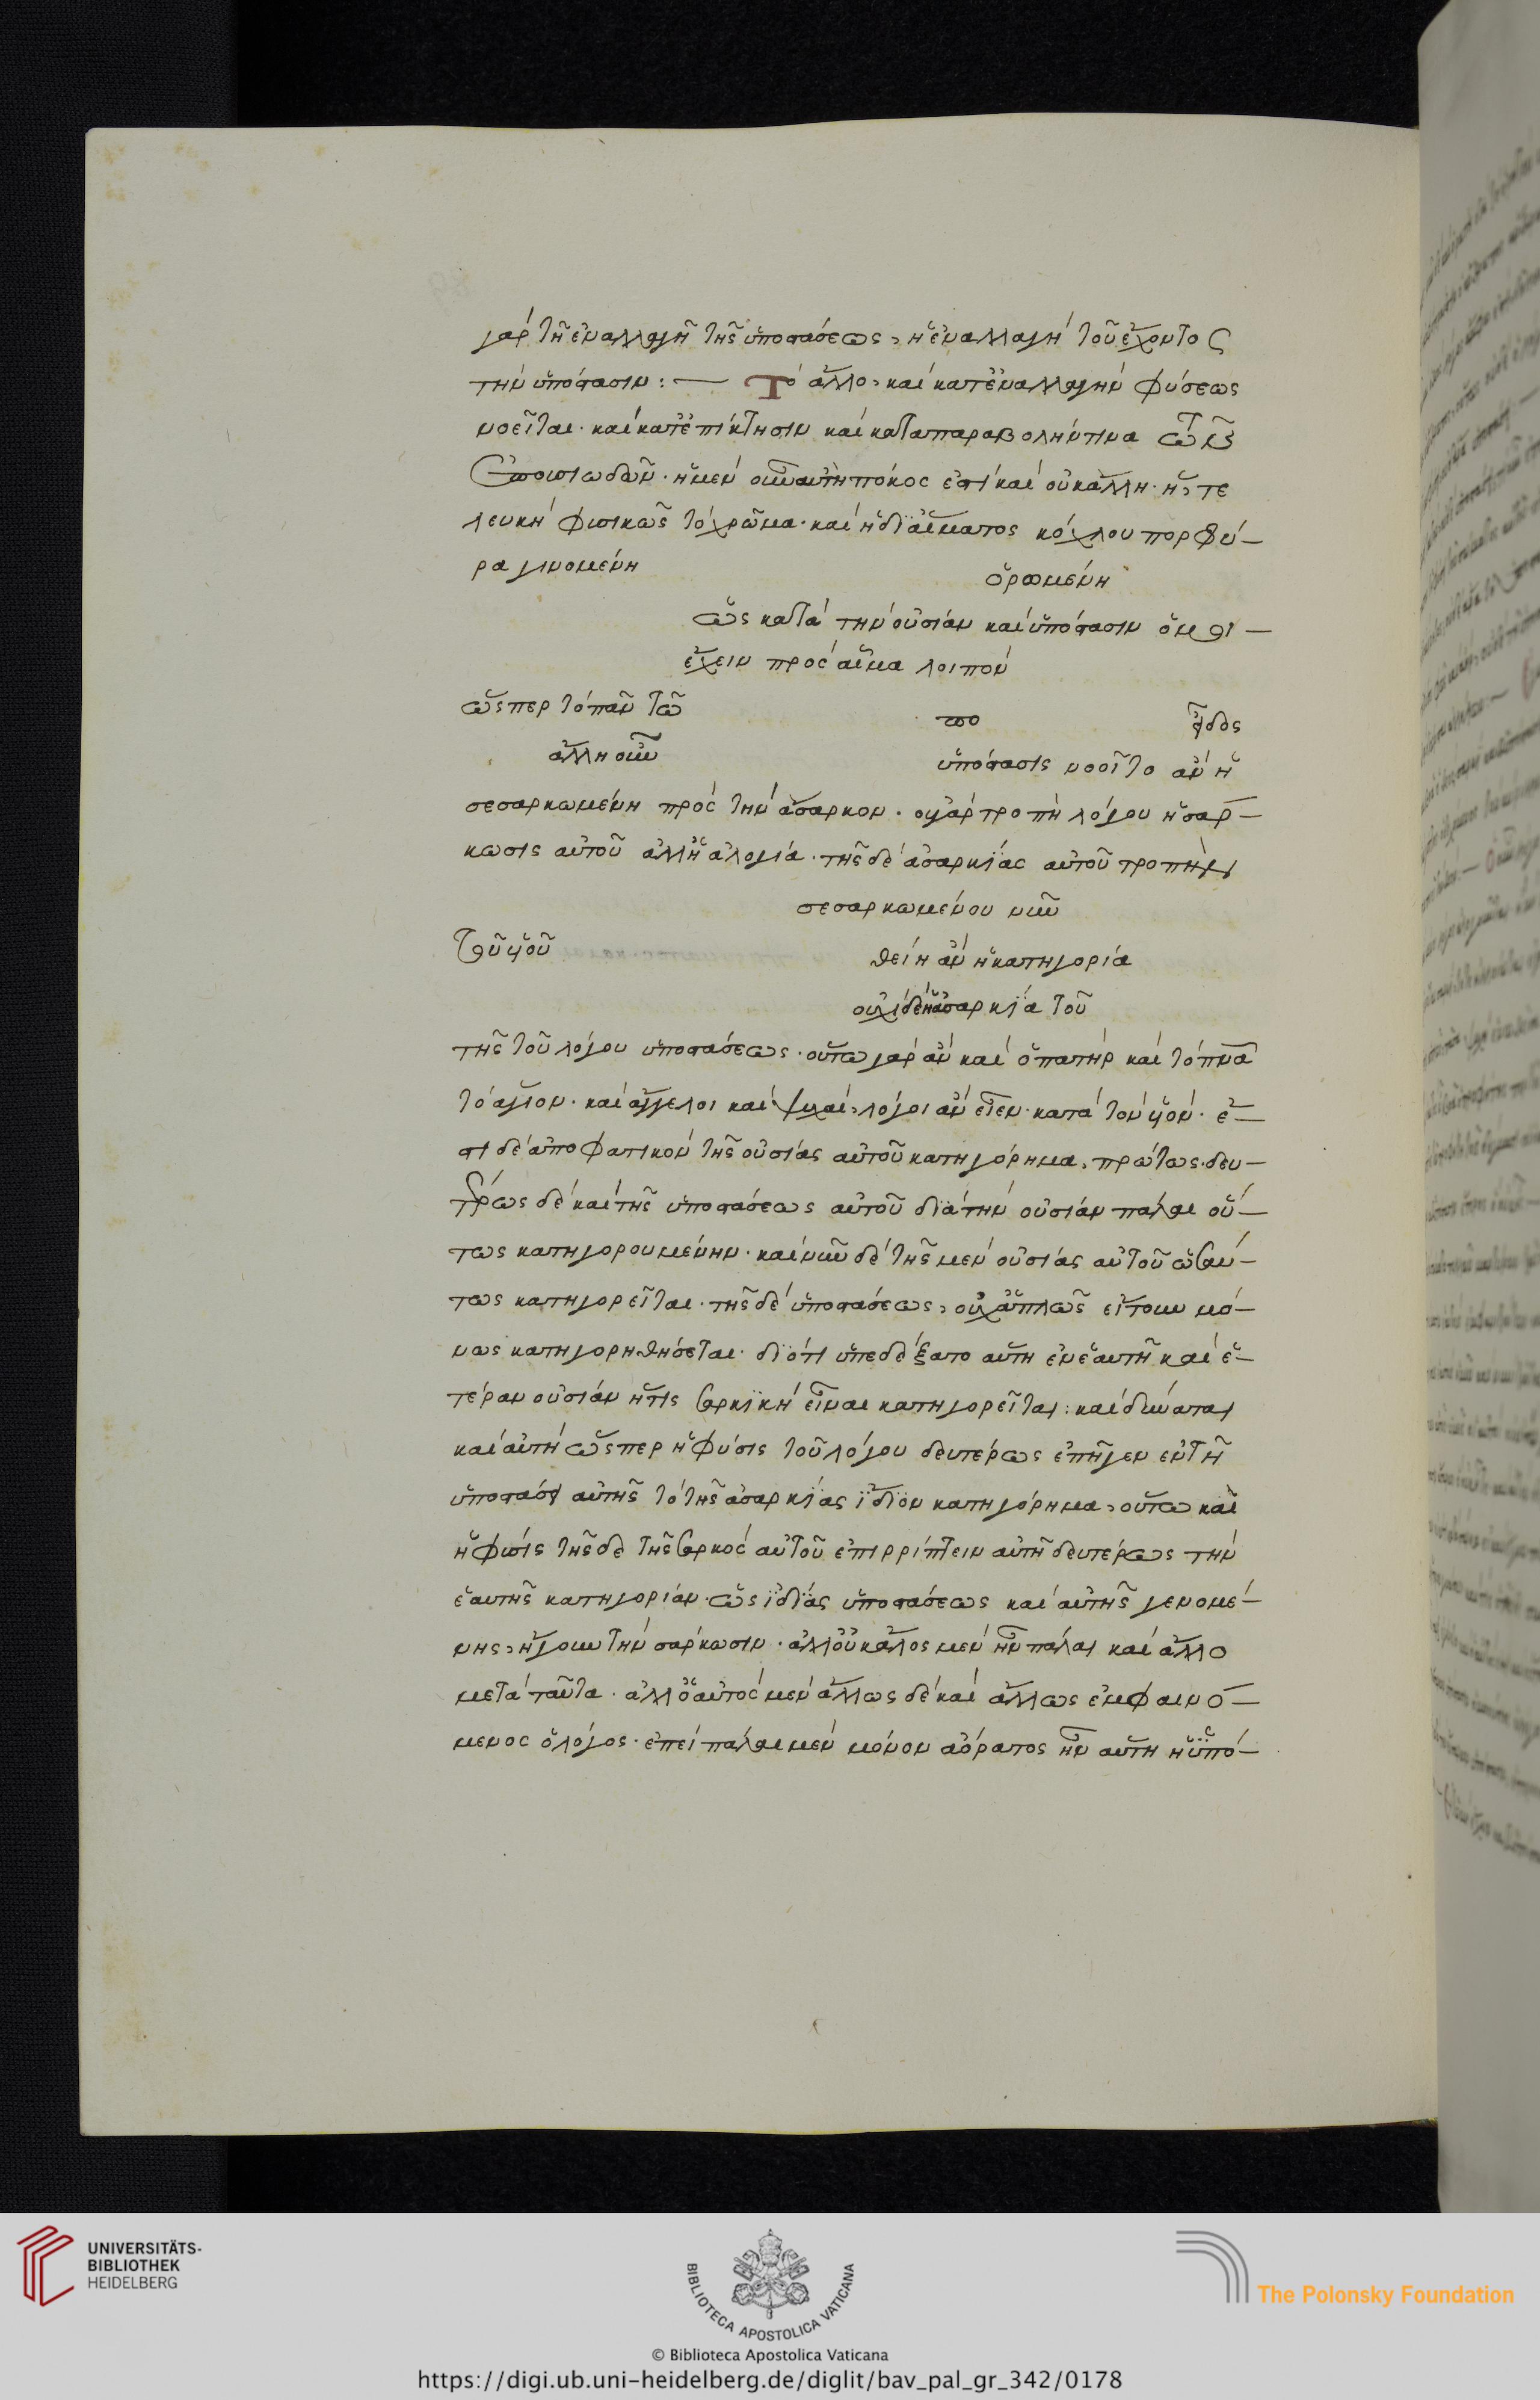 γὰρ τῇ ἐναλλαγῇ τῆς ὑποστάσεως, ἡ ἐναλλαγὴ τοῦ ἔχοντος
τὴν ὑπόστασιν : — Τὸ ἄλλο, καὶ κατ' ἐναλλαγὴν φύσεως
νοεῖται · καὶ κατ' ἐπίκτησιν καὶ κατα παραβολήν τινα
ἡ μὲν οὖν αὐτὴ πόκος ἐστὶ καὶ οὐκ ἄλλη · ἥ, τε
λευκὴ φυσικῶς τὸ χρῶμα · καὶ ἡ δι' αἵματος κόχλου πορφύ–
ρα γινομένη ὁρωμένη
ὡς κατὰ τὴν οὐσίαν καὶ ὑπόστασιν
ἔχειν πρὸς αἷμα λοιπὸν
ὥσπερ τὸ πᾶν τῶ
ἄλλη οὖν ὑπόστασις νοοῖτο ἂν ἡ
σεσαρκωμένη πρὸς τὴν ἄσαρκον · οὐ γὰρ τροπὴ λόγου ἡ σάρ–
κωσις αὐτοῦ ἀλλ' ἡ ἀλογία · τῆς δὲ ἀσαρκίας αὐτοῦ τροπὴ
σεσαρκωμένου νῦν
τοῦ υἱοῦ θείη ἂν ἡ κατηγορία
οὐχὶ δὲ ἡ ἀσαρκία τοῦ
τῆς τοῦ λόγου ὑποστάσεως · οὕτω γὰρ ἂν καὶ ὁ πατὴρ καὶ τὸ πνα
τὸ ἅγιον · καὶ ἄγγελοι καὶ ψυχαὶ, λόγοι ἂν εἶεν · κατὰ τὸν υἱὸν · ἔ–
στι δὲ ἀποφατικὸν τῆς οὐσίας αὐτοῦ κατηγόρημα, πρώτως · δευ–
τέρως δὲ καὶ τῆς ὑποστάσεως αὐτοῦ διὰ τὴν οὐσίαν πάλαι οὕ–
τως κατηγορουμένην · καὶ νῦν δὲ τῆς μὲν οὐσίας αὐτοῦ ὡσαύ–
τως κατηγορεῖται · τῆς δὲ ὑποστάσεως, οὐχ ἁπλῶς εἴτουν μό–
νως κατηγορηθήσεται · διότι ὑπεδέξατο αὕτη ἐν ἑαυτῇ καὶ ἑ–
τέραν οὐσίαν ἥτις σαρκικὴ εἶναι κατηγορεῖται : καὶ δύναται
καὶ αὐτὴ ὥσπερ ἡ φύσις τοῦ λόγου δευτέρως ἐπῆγεν ἐν τῇ
ὑποστάσει αὐτῆς τὸ τῆς ἀσαρκίας ἴδιον κατηγόρημα, οὕτω καὶ
ἡ φύσις τῆς δε τῆς σαρκὸς αὐτοῦ ἐπιρρίπτειν αὐτῇ δευτέρως τὴν
ἑαυτῆς κατηγορίαν · ὡς ἰδίας ὑποστάσεως καὶ αὐτῆς γενομέ–
νης, ἤγουν τὴν σάρκωσιν · ἀλλ' οὐκ ἄλλος μὲν ἦν πάλαι καὶ ἄλλο
μετὰ ταῦτα · ἀλλ' ὁ αὐτὸς μὲν ἄλλως δὲ καὶ ἄλλως ἐμφαινό–
μενος ὁ λόγος · ἐπεὶ πάλαι μὲν μόνον ἀόρατος ἦν αὕτη ἡ ὑπό–
UNIVERSITÄTS-
BIBLIOTHEK
HEIDELBERG
BIBLIOTECA APOSTOLICA VATICANA
The Polonsky Foundation
© Biblioteca Apostolica Vaticana
https://digi.ub.uni-heidelberg.de/diglit/bav_pal_gr_342/0178